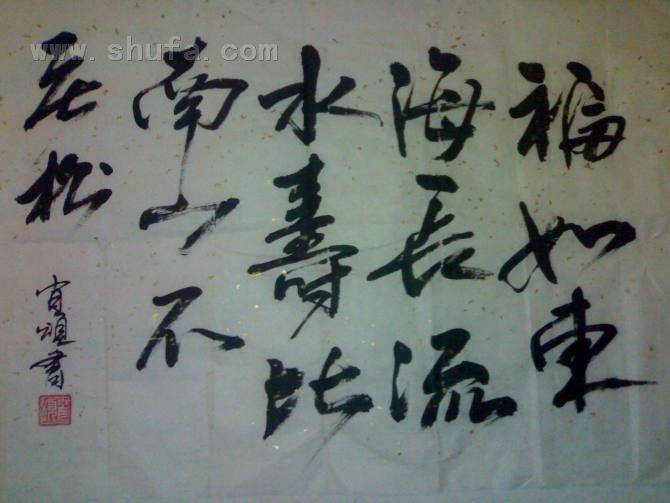 www.shufa.com
福如東
海長流
水壽比
南山不
老松
肖頌書